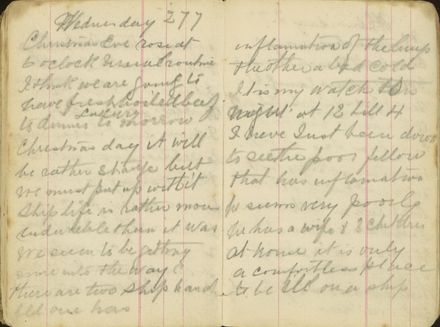 Wednesday 277
Christmas Eve rose at
6 oclock Usual routine
I think we are going to
have fresh boiled beef
Luxury
to dinner to morrow
Christmas day it will
be rather strange but
we must put up with it
Ship life is rather more
endurable then it was
we seem to be getting
more into the way
there are two ship hands
ill one has
inflamation of the lungs
the other a bad cold
it is my watch to
night at 12 till 4
I have Just been down
to see the poor fellow
that has inflamation
he seems very poorly
he has a wife & 2 children
at home it is only
a comfortless place
to be ill on a ship